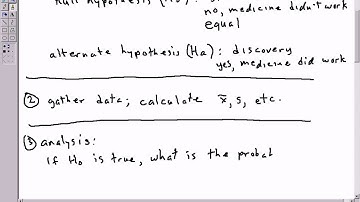 null hypothesis (Ho) :
no, medicine didn't work
equal
alternate hypothesis (Ha) : discovery
yes, medicine did work
② gather data; calculate x̄, s, etc.
③ analysis:
If Ho is true, what is the probat